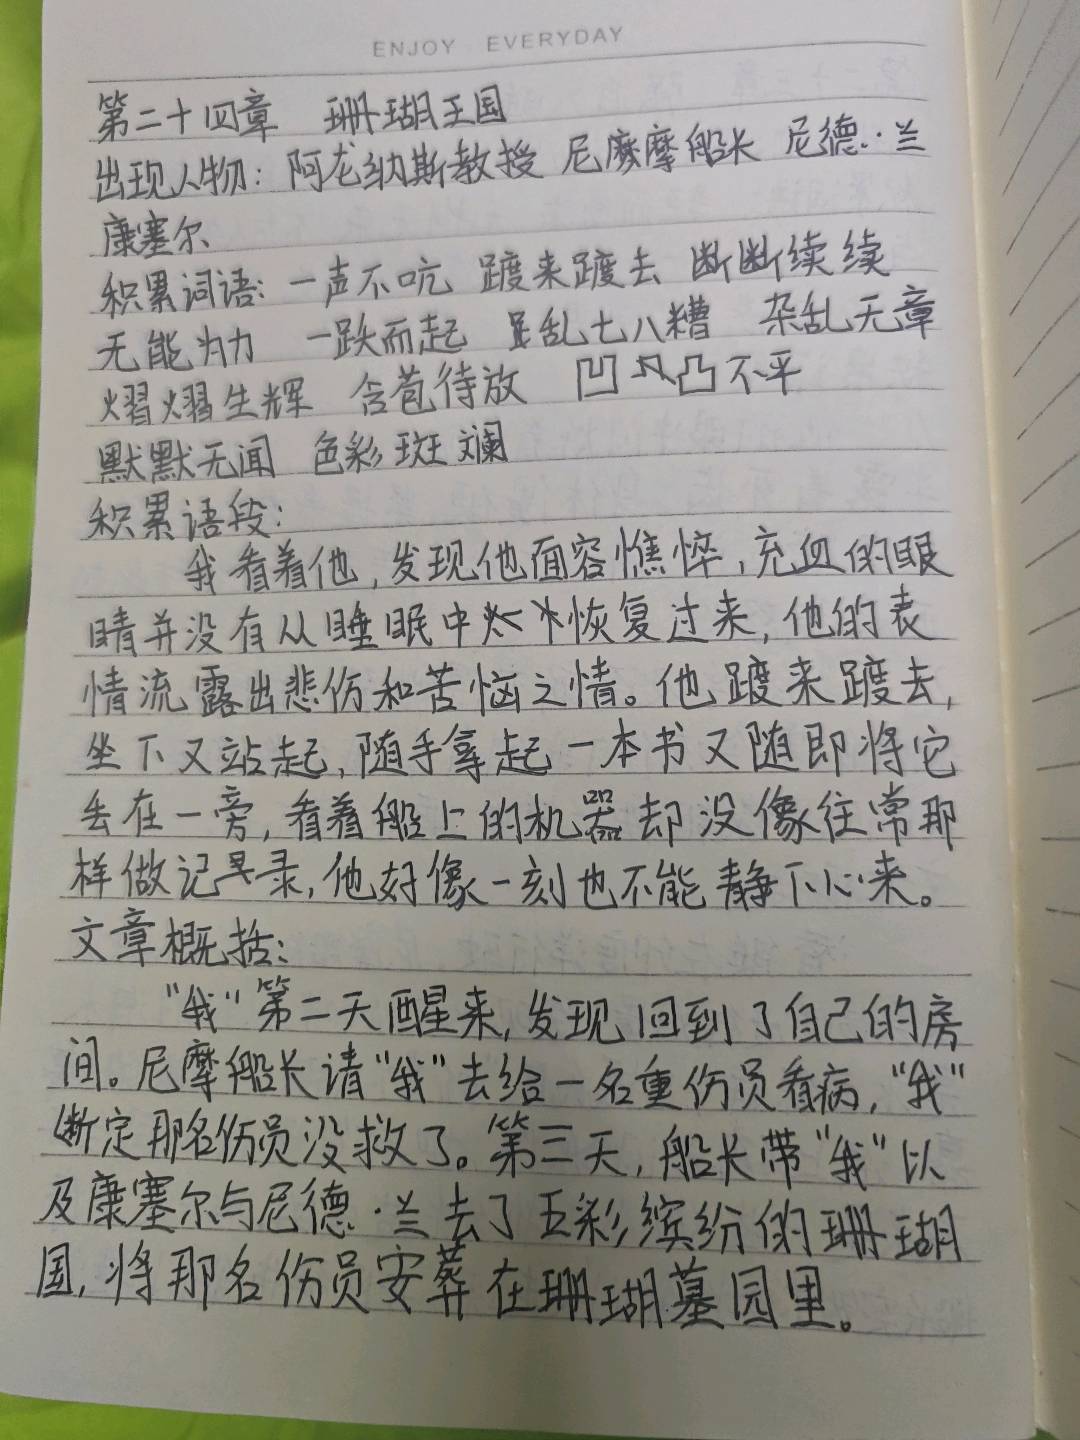 ENJOY EVERYDAY
第二十四章 珊瑚王国
出现人物：阿龙纳斯教授 尼摩船长 尼德·兰
康塞尔
积累词语：一声不吭 踱来踱去 断断续续
无能为力 一跌而起 乱七八糟 杂乱无章
熠熠生辉 含苞待放 凹凸不平
默默无闻 色彩斑斓
积累语段：
我看着他，发现他面容憔悴，充血的眼
睛并没有从睡眠中恢复过来，他的表
情流露出悲伤和苦恼之情。他踱来踱去，
坐下又站起，随手拿起一本书又随即将它
丢在一旁，看着船上的机器却没像往常那
样做记录，他好像一刻也不能静下心来。
文章概括：
“我”第二天醒来，发现回到了自己的房
间。尼摩船长请“我”去给一名重伤员看病，“我”
断定那名伤员没救了。第三天，船长带“我”以
及康塞尔与尼德·兰去了五彩缤纷的珊瑚
国，将那名伤员安葬在珊瑚墓园里。